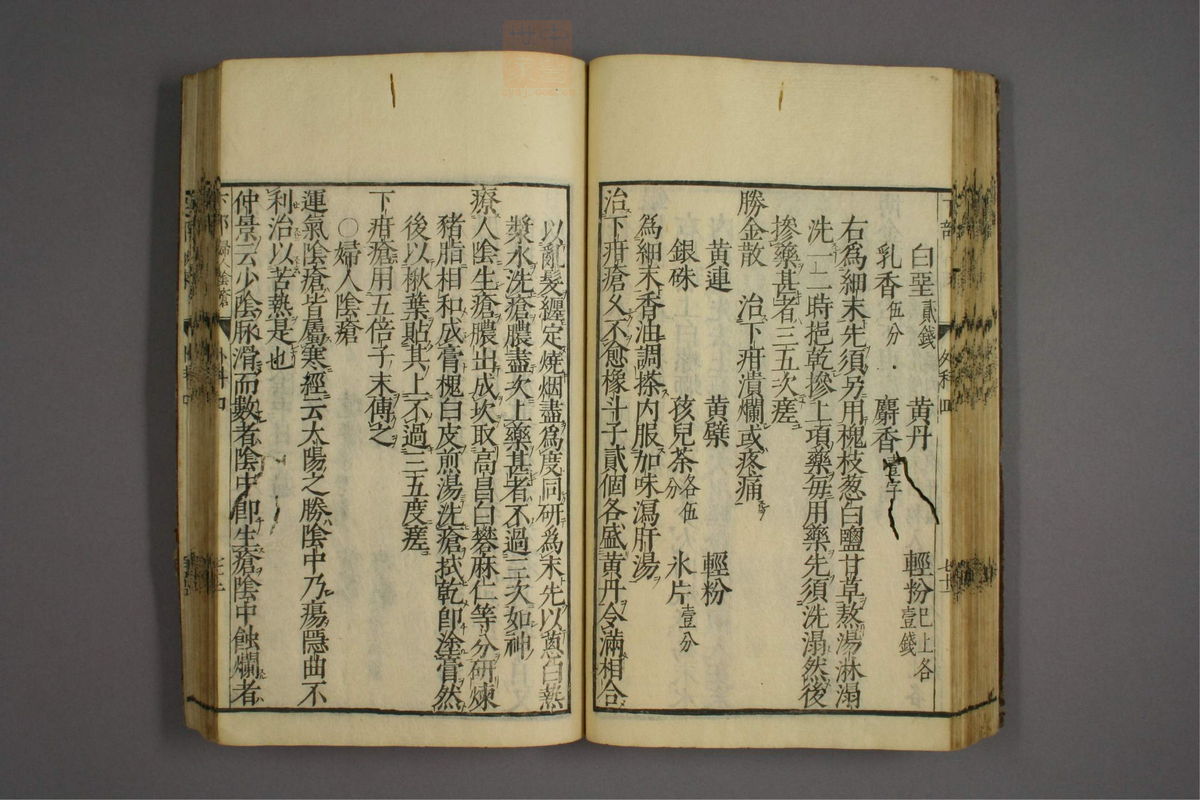 白堊貳錢 黄丹 輕粉巳上各壹錢
乳香伍分 麝香壹字
右為細末先須另用槐枝葱白鹽甘草熬湯淋溻
洗一二時挹乾摻上項藥每用藥先須洗溻然後
摻藥甚者三五次瘥
勝金散 治下疳潰爛或疼痛
黄連 黄檗 輕粉
銀硃 孩兒茶各伍分 氷片壹分
為細末香油調搽内服加味瀉肝湯
治下疳瘡久不愈橡斗子貳個各盛黄丹令滿相合
以亂髮纏定燒烟盡為度同研為末先以葱白熱
漿水洗瘡膿盡次上藥甚者不過三次如神
療人陰生瘡膿出成坎取高昌白礬麻仁等分研煉
豬脂相和成膏槐白皮煎湯洗瘡拭乾即塗膏然
後以楸葉貼其上不過三五度瘥
下疳瘡用五倍子末傅之
〇婦人陰瘡
運氣陰瘡皆屬寒經云太陽之勝陰中乃瘍隱曲不
利治以苦熱是也
仲景云少陰脉滑而數者陰中即生瘡陰中蝕爛者